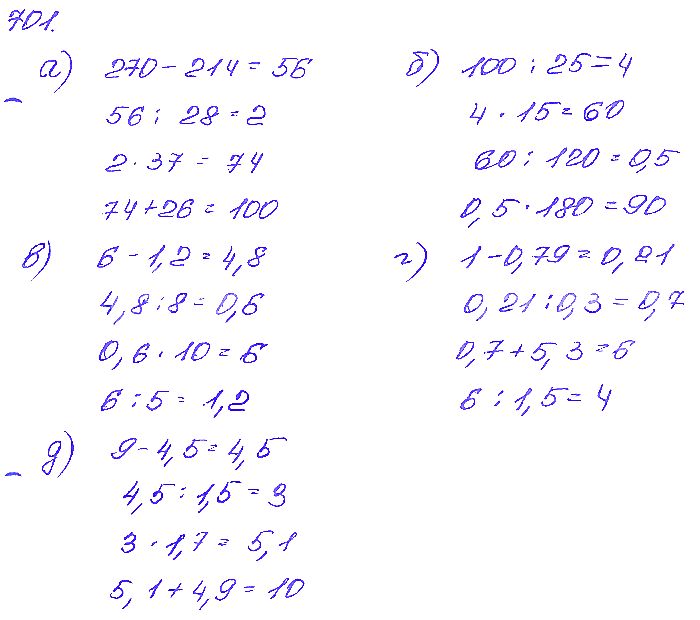 701.
а) 270 - 214 = 56
56 : 28 = 2
2 · 37 = 74
74 + 26 = 100
б) 100 : 25 = 4
4 · 15 = 60
60 : 120 = 0,5
0,5 · 180 = 90
в) 6 - 1,2 = 4,8
4,8 : 8 = 0,6
0,6 · 10 = 6
6 : 5 = 1,2
г) 1 - 0,79 = 0,21
0,21 : 0,3 = 0,7
0,7 + 5,3 = 6
6 : 1,5 = 4
д) 9 - 4,5 = 4,5
4,5 : 1,5 = 3
3 · 1,7 = 5,1
5,1 + 4,9 = 10